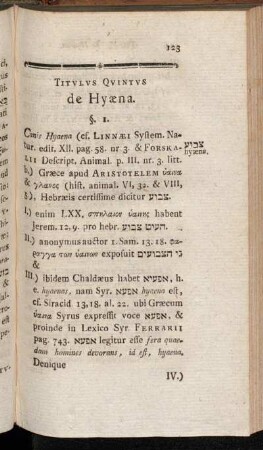 123
TITVLVS QVINTVS
de Hyæna.
§. 1.
Canis Hyaena (cf. LINNÆI System. Na-
tur. edit. XII. pag. 58. nr 3. & FORSKA-
LII Descript. Animal. p. III. nr. 3. litt.
b.) Græce apud ARISTOTELEM ὑαινα
& γλανος (hist. animal. VI, 32. & VIII,
5), Hebræis certissime dicitur צבוע.
צבוע
hyæna.
I.) enim LXX, σπηλαιον ὑαινης habent
Jerem. 12. 9. pro hebr. העיט צבוע.
II.) anonymus auctor 1. Sam. 13. 18. φα-
ραγγα των ὑαινων exposuit גי הצבועים
&
III.) ibidem Chaldæus habet אפעיא, h.
e. hyaenas, nam Syr. אפעא hyæna est,
cf. Siracid 13, 18. al. 22. ubi Græcum
ὑαινα Syrus expressit voce אפעא, &
proinde in Lexico Syr. FERRARII
pag. 743. אפעא legitur esse fera quae-
dam homines devorans, id est, hyaena,
Denique
IV.)